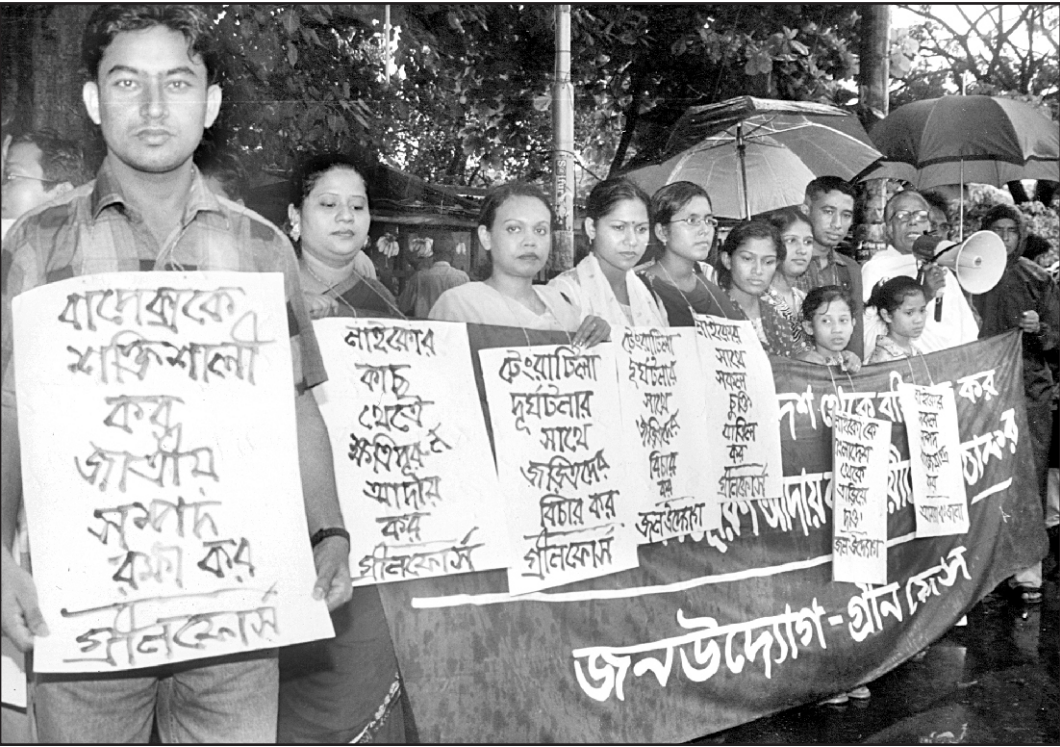 বাপেক্সকে
শক্তিশালী
কর
জাতীয়
সম্পদ
রক্ষা কর
গ্রীনফোর্স
নাইকোর
কাছ
থেকে
ক্ষতিপূরণ
আদায়
কর
গ্রীনফোর্স
টেংরাটিলা
দূর্ঘটনার
সাথে
জড়িতদের
বিচার কর
গ্রীনফোর্স
টেংরাটিলা
দূর্ঘটনার
সাথে
বিচার
কর
জনউদ্যোগ
নাইকোর
সাথে
সকল
চুক্তি
বাতিল
কর
গ্রীনফোর্স
নাইকোকে
বাংলাদেশ
থেকে
তাড়িয়ে
দাও
জনউদ্যোগ
নাইকোর
সকল
সম্পদ
কর
থেকে
কর
আদায়
জনউদ্যোগ-গ্রীন ফোর্স